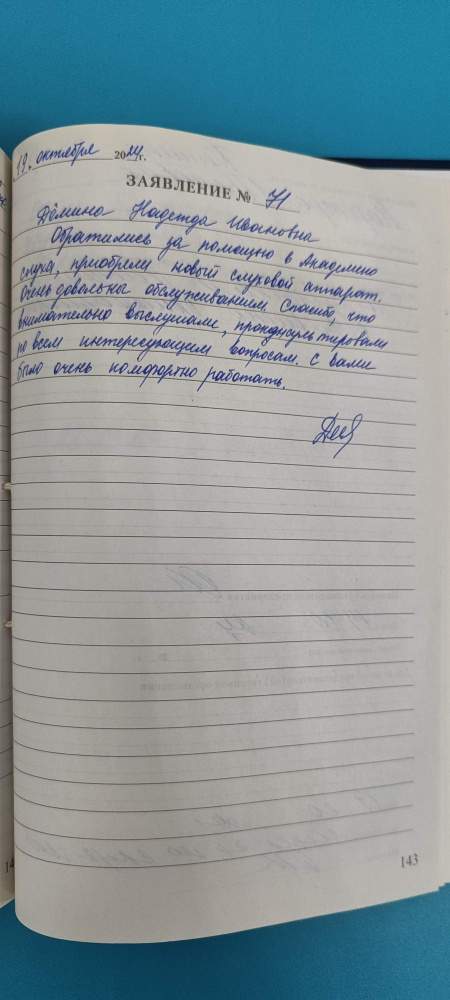 19. октября 2024г.
ЗАЯВЛЕНИЕ № 71
Дёмина Надежда Ивановна
Обратились за помощью в Академию
слуха, приобрели новый слуховой аппарат.
Очень довольна обслуживанием. Спасибо, что
внимательно выслушали, проконсультировали
по всем интересующим вопросам. С вами
было очень комфортно работать.
143